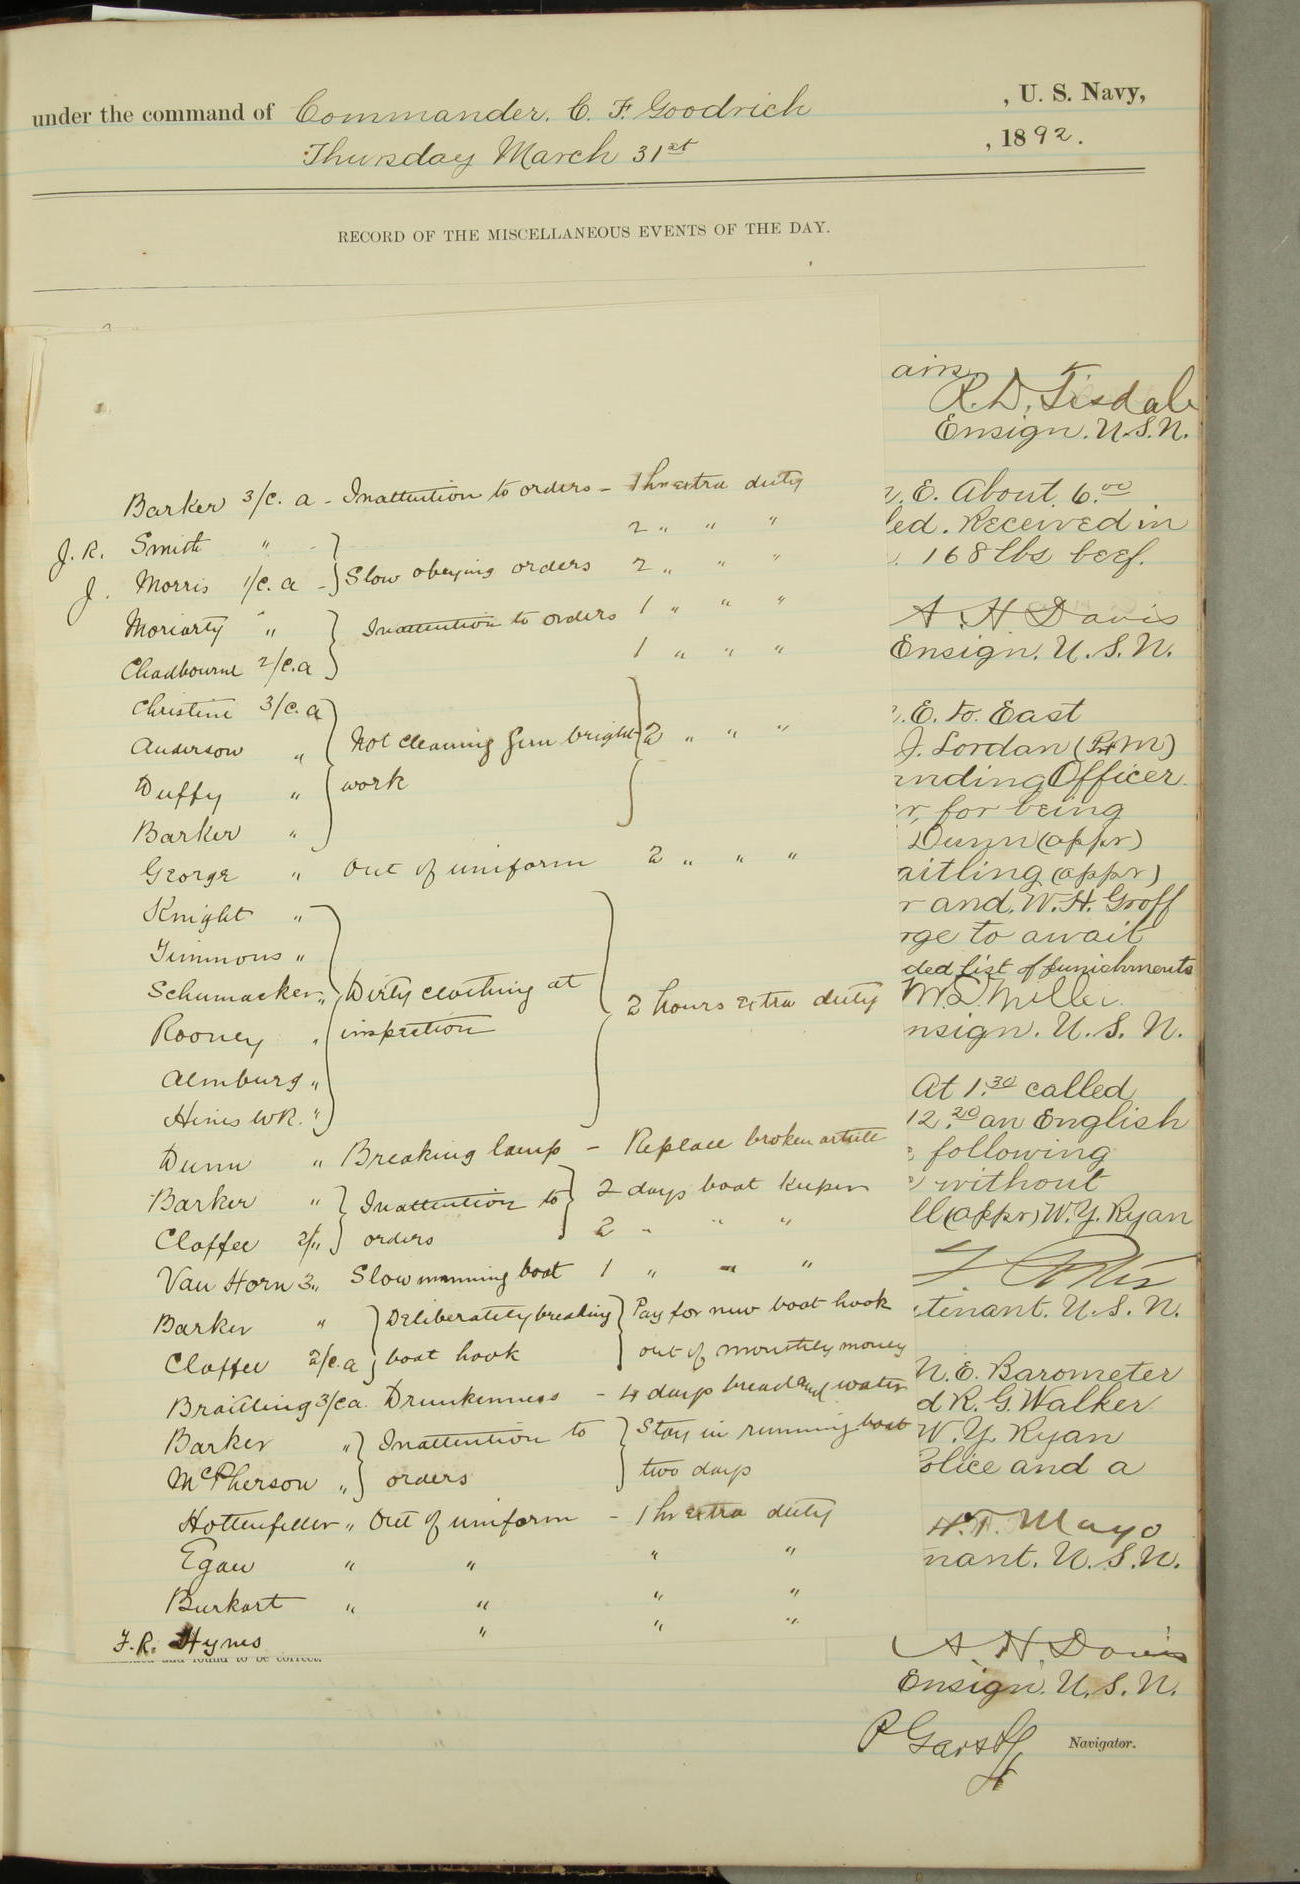 under the command of Commander. C. F. Goodrich , U. S. Navy,
Thursday March 31st , 1892.
RECORD OF THE MISCELLANEOUS EVENTS OF THE DAY.
Barker 3/c. a - Inattention to orders - 1 hr extra duty
J. R. Smith " - } 2 " " "
J. Morris 1/c. a - } Slow obeying orders 2 " " "
Moriarty " } Inattention to orders 1 " " "
Chadbourne 2/c. a } 1 " " "
Christine 3/c. a
Anderson " Not cleaning Gun bright 2 " " "
Duffy " work
Barker "
George " Out of uniform 2 " " "
Knight "
Timmons "
Schumacker " Dirty clothing at 2 hours extra duty
Rooney " inspection
Almburg "
Hines W.R. "
Dunn " Breaking lamp - Replace broken article
Barker " } Inattention to } 2 days boat keeper
Claffee 2/" } orders 2 " " "
Van Horn 3 " Slow manning boat 1 " " "
Barker " } Deliberately breaking } Pay for new boat hook
Claffee 2/c. a } boat hook out of monthly money
Braitling 3/c a. Drunkenness - 4 days bread and water
Barker " } Inattention to } Stay in running boat
McPherson " } orders two days
Hottenfeller " Out of uniform - 1 hr extra duty
Egan " " " "
Burkart " " " "
F. R. Hynes " " "
and found to be correct.
R. D. Tisdale
Ensign. U.S.N.
. E. About 6.00
led. Received in
. 168 lbs beef.
A. H. Davis
Ensign. U. S. N.
. E. to. East
J. Lordan (P M)
anding Officer
r for being
Dunn (appr)
aitling (appr)
r and. W. H. Groff
rge to await
ded list of punishments
M. D. Miller
nsign. U. S. N.
At 1.30 called
12.20 an English
following
without
ll (appr) W. Y. Ryan
tenant. U. S. N.
N. E. Barometer
d R. G. Walker
W. Y. Ryan
Police and a
H. T. Mayo
nant. U. S. N.
A. H. Davis
Ensign. U. S. N.
Navigator.